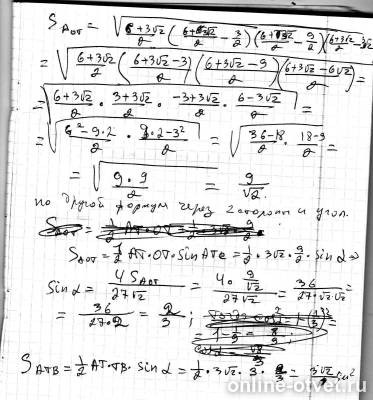 S_AOT = √((6+3√2)/2 ((6+3√2)/2 − 3/2)((6+3√2)/2 − 9/2)((6+3√2)/2 − 3√2)
= √((6+3√2)/2 ((6+3√2−3)/2)((6+3√2−9)/2)((6+3√2−6√2)/2) =
= √((6+3√2)/2 · (3+3√2)/2 · (−3+3√2)/2 · (6−3√2)/2) =
= √((6²−9·2)/2 · (9·2−3²)/2) = √((36−18)/2 · (18−9)/2 =
= √((9·9)/2) = 9/√2.
по другой формуле через 2 стороны и угол.
S_AOT = 1/2 AT·OT·sin ATO = 1/2 · 3√2 · 9/2 · sin α ⇒
Sin α = 4 S_AOT/27√2 = 4 · (9/√2)/27√2 = 36/27·√2·√2 =
= 36/27·2 = 2/3 ;
S_ATB = 1/2 AT·TB · sin α = 1/2 · 3√2 · 3 ·
online-otvet.ru